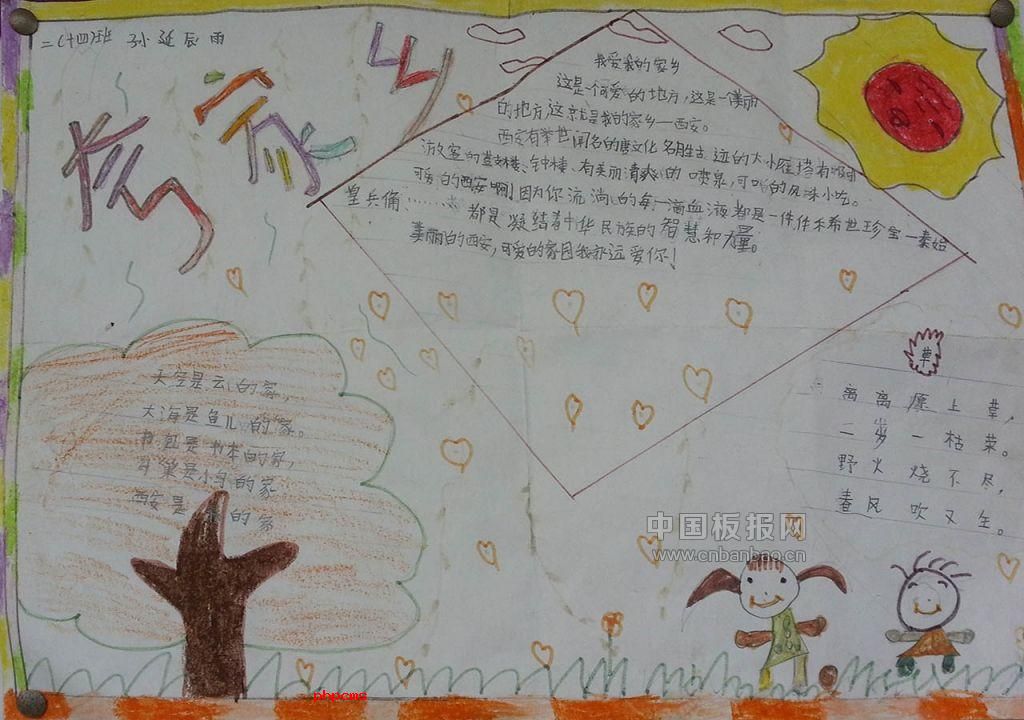 二(十四)班 孙延辰雨
家乡
我爱我的家乡
这是一个可爱的地方,这是一个美丽
的地方,这就是我的家乡—西安。
西安有举世闻名的唐文化 名胜古迹的大小雁塔有
的鼓楼、钟楼、有美丽清爽的喷泉,可口的风味小吃。
可爱的西安啊!因为你流淌的每一滴血液都是一件件希世珍宝—秦始
皇兵俑………都是凝结着中华民族的智慧和力量。
美丽的西安,可爱的家园我永远爱你!
天空是云的家,
大海是鱼儿的家。
书包是书本的家,
巢是小鸟的家
西安是我的家
草
离离原上草,
二岁一枯荣。
野火烧不尽,
春风吹又生。
中国板报网
www.cnbanbao.cn
phpcms